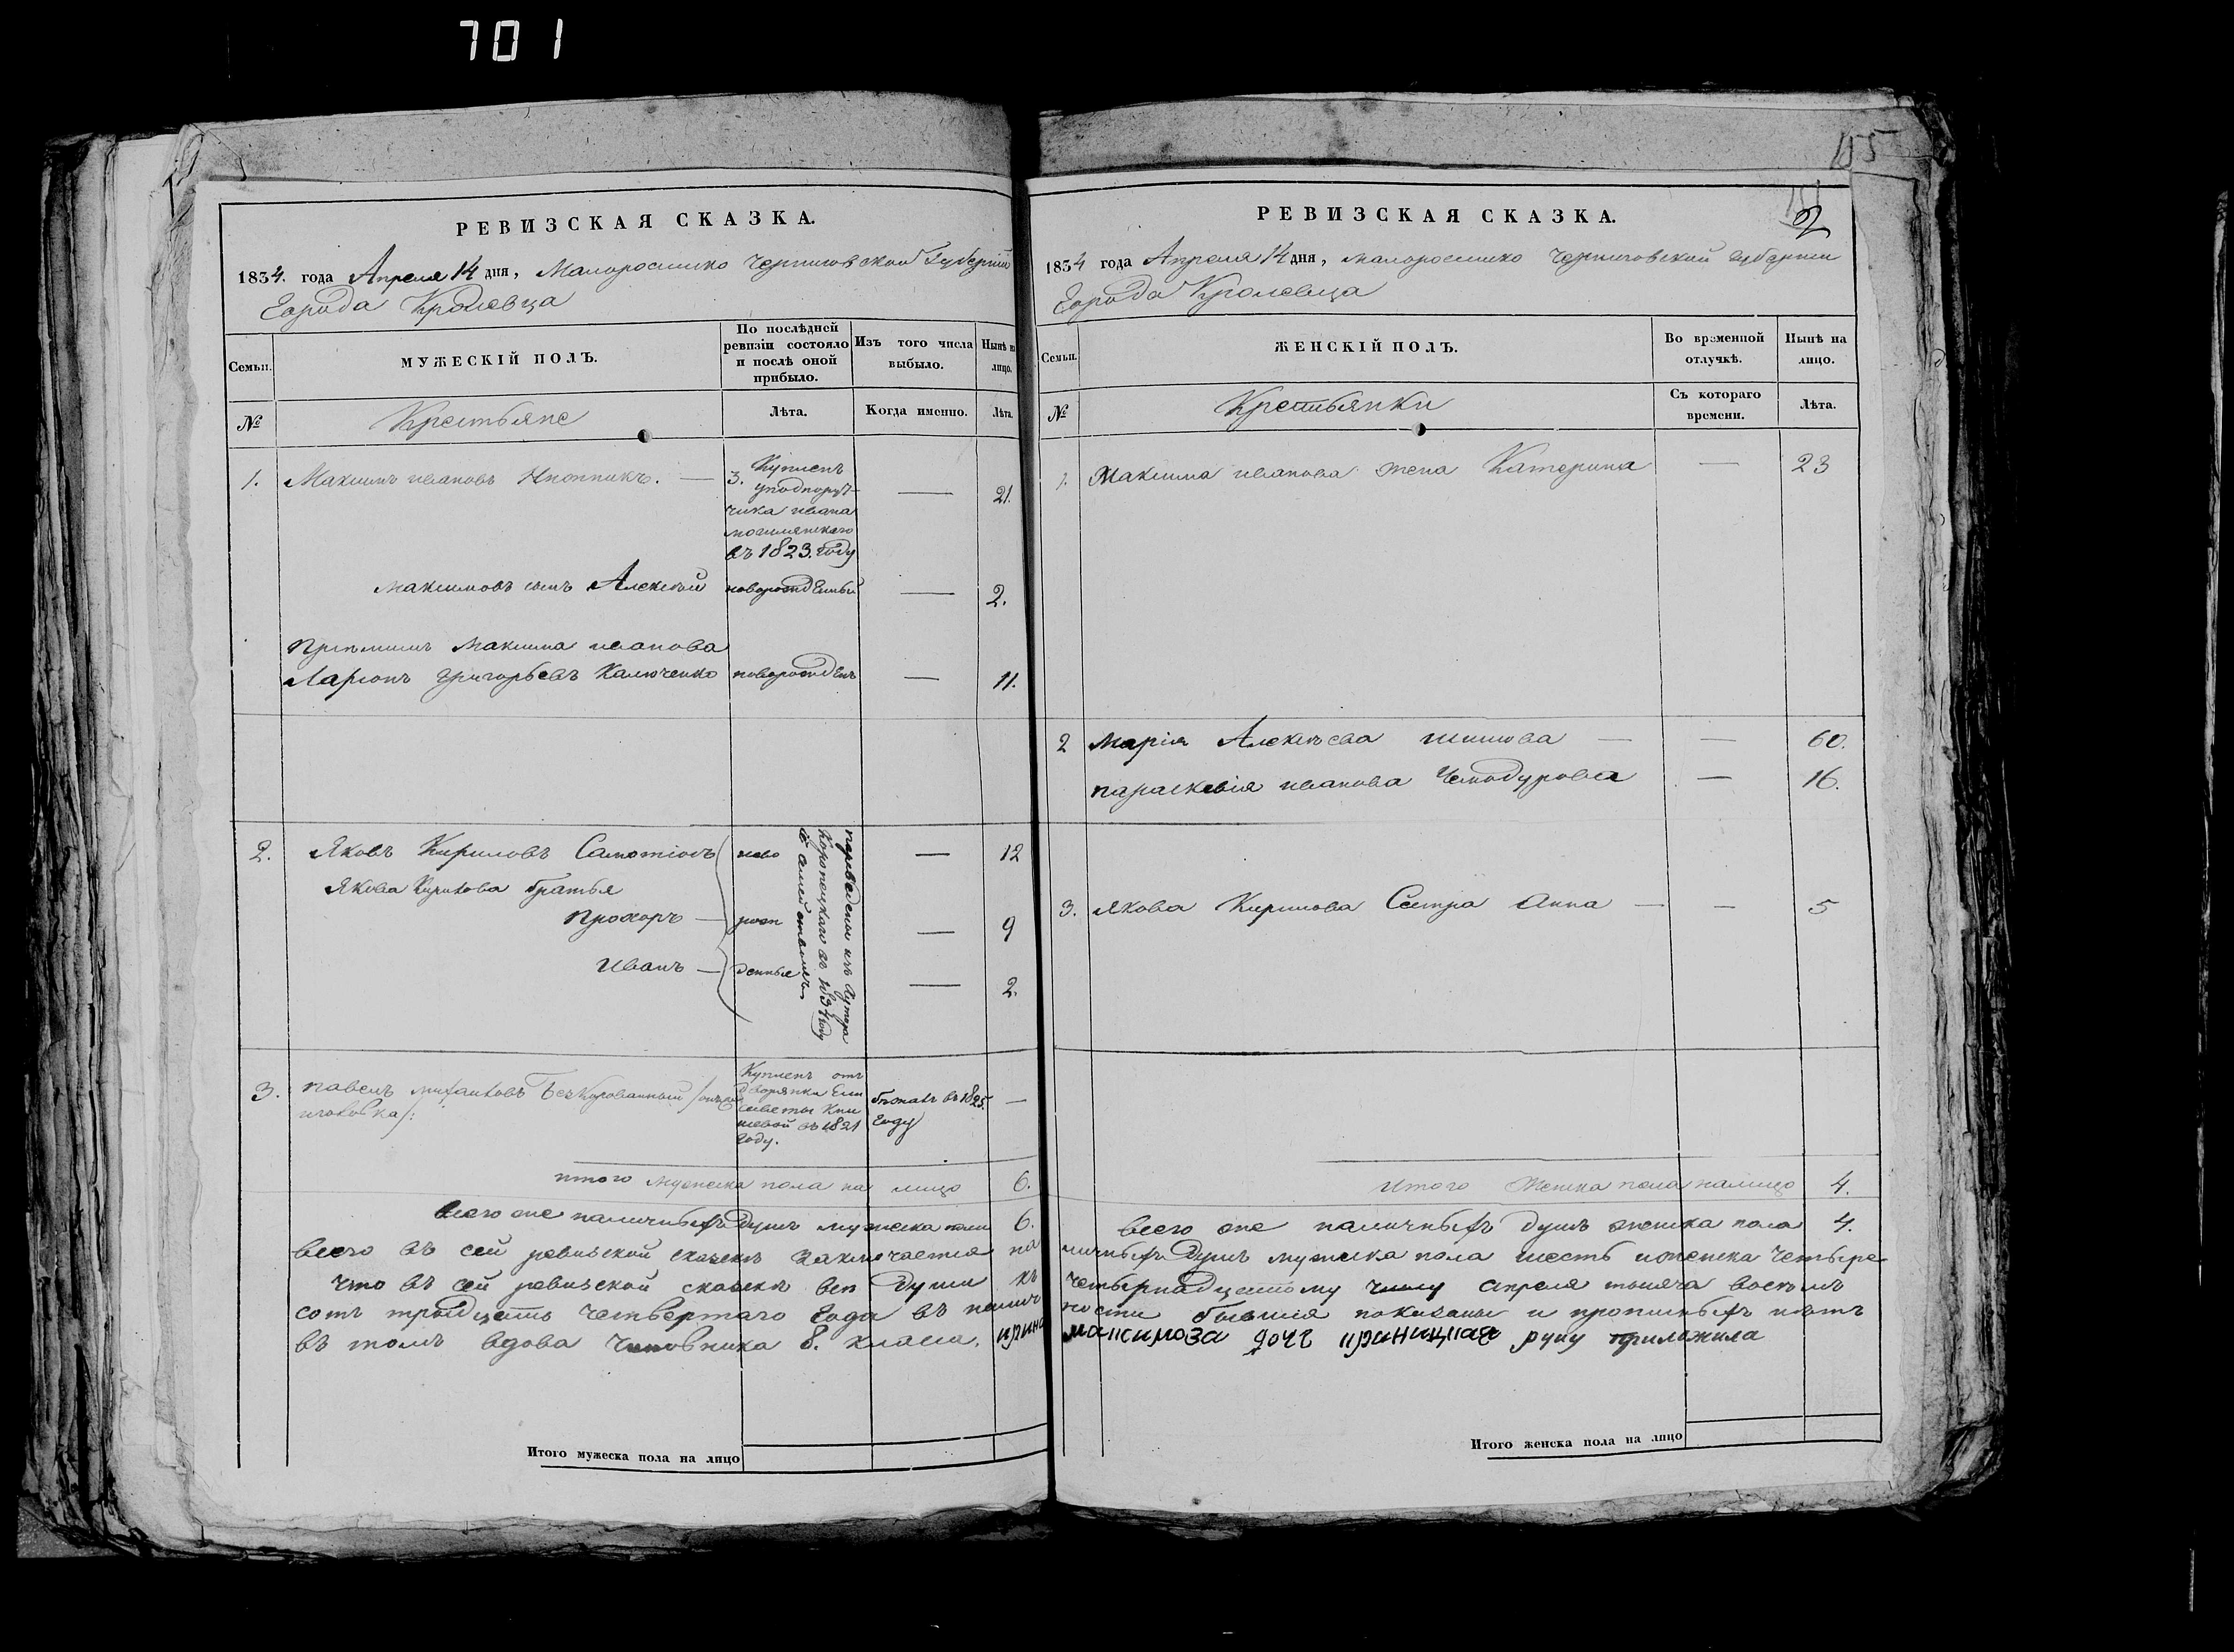 701
155
2
РЕВИЗСКАЯ СКАЗКА.
1834. года Апреля 14 дня, Малоросииско Черниговской Губерніи
Города Кролевца
Семьи.
МУЖЕСКІЙ ПОЛЪ.
По послѣдней ревизіи состояло и послѣ оной прибыло.
Изъ того числа выбыло.
Нынѣ на лицо.
№
Крестьяне
Лѣта.
Когда именно.
Лѣта.
1. Максимъ ивановъ — 3. 21.
Купленъ
уподпору
чика ивана
въ 1823. году
Максимовъ сынъ Алексѣй новорожденный — 2.
Максима иванова
Ларионъ григорьевъ Калюченко новорожденъ — 11.
2. Яковъ Кириловъ ново — 12
Якова Кирилова братья
Прохоръ — рож — 9
Иванъ — денные — 2.
переведены изъ хутора
Коропецкаго въ 1834 году
3. павелъ михаиловъ
Купленъ отъ
дворянки Ели
саветы Кни
шевой въ 1821
году.
бежалъ въ 1825.
году
—
итого мужеска пола на лицо 6.
всего же наличныхъ душъ мужеска пола 6.
всего въ сей ревизской сказкѣ заключается на
что въ сей ревизской сказкѣ все души къ
сотъ тридцать четвертаго года въ налич
въ томъ вдова Чиновника 8. класса.
Итого мужеска пола на лицо
РЕВИЗСКАЯ СКАЗКА.
1834 года Апреля 14 дня, малоросииско Черниговской губернии
Города Кролевца
Семьи.
ЖЕНСКІЙ ПОЛЪ.
Во врэменной отлучкѣ.
Нынѣ на лицо.
№
Крестьянки
Съ котораго времени.
Лѣта.
1. Максима иванова жена Катерина — 23
2 Марія Алексѣева — — 60.
параскевія иванова Чемодурова — 16.
3. Якова Кирилова Сестра Анна — — 5
Итого женска пола налицо 4.
всего же наличныхъ душъ женска пола 4.
личныхъ душъ мужеска пола шесть иженска четыре
четырнадцатому числу апреля тысяча восемъ
ности бывшія показаны и прописныхъ нѣтъ
максимова руку приложила
Итого женска пола на лицо